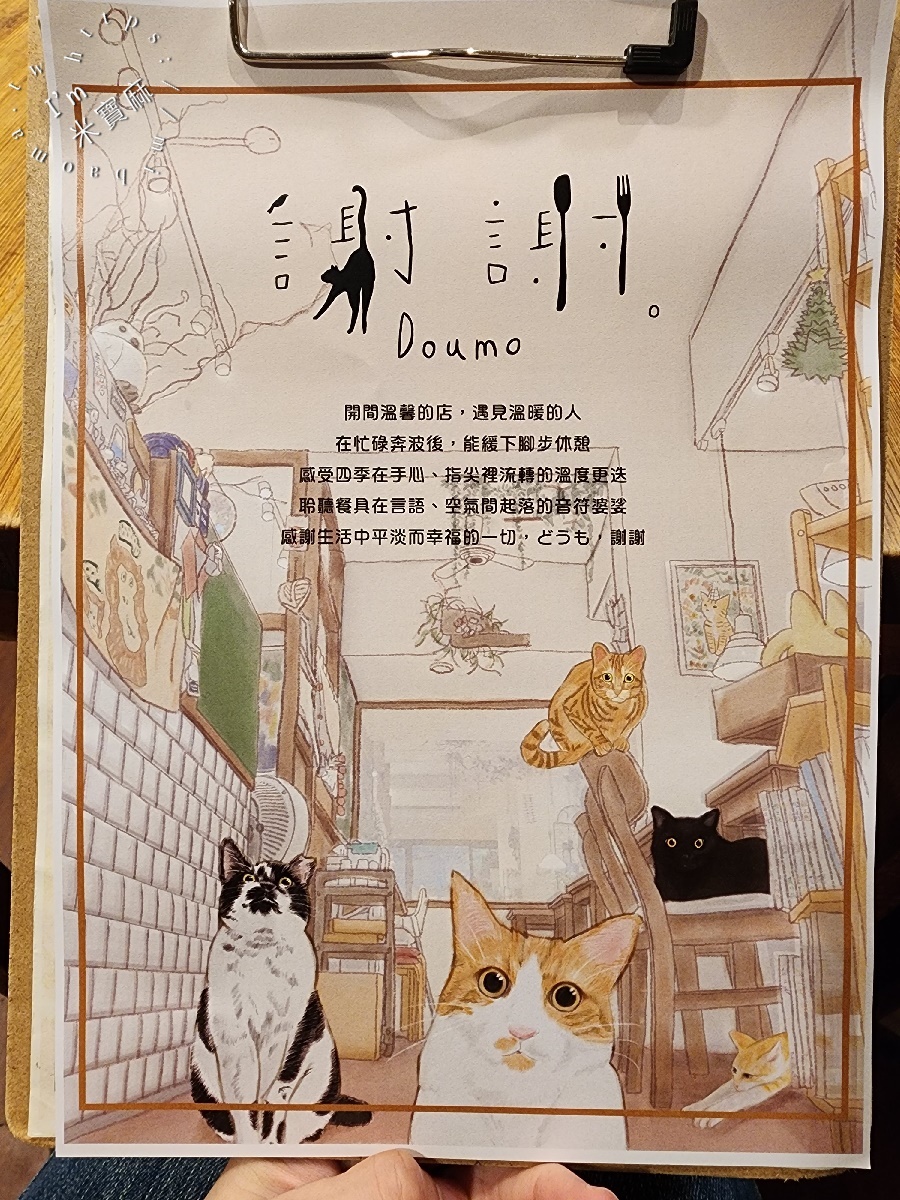 I'm 米寶麻
謝謝。
Doumo
開間溫馨的店，遇見溫暖的人
在忙碌奔波後，能緩下腳步休憩
感受四季在手心、指尖裡流轉的溫度更迭
聆聽餐具在言語、空氣間起落的音符婆娑
感謝生活中平淡而幸福的一切，どうも，謝謝